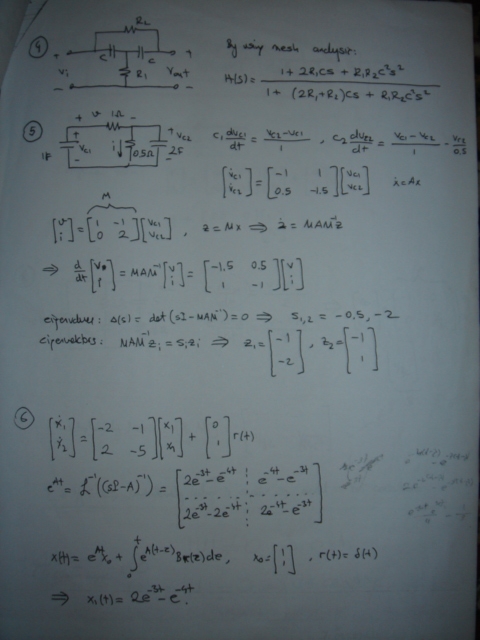 4
R2
+ C C +
Vi R1 Vout
- -
By using mesh analysis:
H(s) = (1 + 2R1Cs + R1R2C²s²) / (1 + (2R1+R2)Cs + R1R2C²s²)
5
+ v 1Ω -
1F + VC1 - i ↓ 0.5Ω + VC2 - 2F
C1 dVC1/dt = (VC2 - VC1)/1 , C2 dVC2/dt = (VC1 - VC2)/1 - VC2/0.5
[V̇C1; V̇C2] = [-1 1; 0.5 -1.5] [VC1; VC2] ẋ = Ax
M
[v; i] = [1 -1; 0 2] [VC1; VC2] , z = Mx ⇒ ż = MAM⁻¹z
⇒ d/dt [v; i] = MAM⁻¹ [v; i] = [-1.5 0.5; 1 -1] [v; i]
eigenvalues: Δ(s) = det(sI - MAM⁻¹) = 0 ⇒ s1,2 = -0.5, -2
eigenvectors: MAM⁻¹zi = sizi ⇒ z1 = [-1; -2] , z2 = [-1; 1]
6
[ẋ1; ẋ2] = [-2 -1; 2 -5] [x1; x2] + [0; 1] r(t)
e^At = L⁻¹((sI-A)⁻¹) = [2e^-3t - e^-4t e^-4t - e^-3t; 2e^-3t - 2e^-4t 2e^-4t - e^-3t]
x(t) = e^At x0 + ∫0^t e^A(t-z) Br(z)dz , x0 = [1; 1] , r(t) = δ(t)
⇒ x1(t) = 2e^-3t - e^-4t.